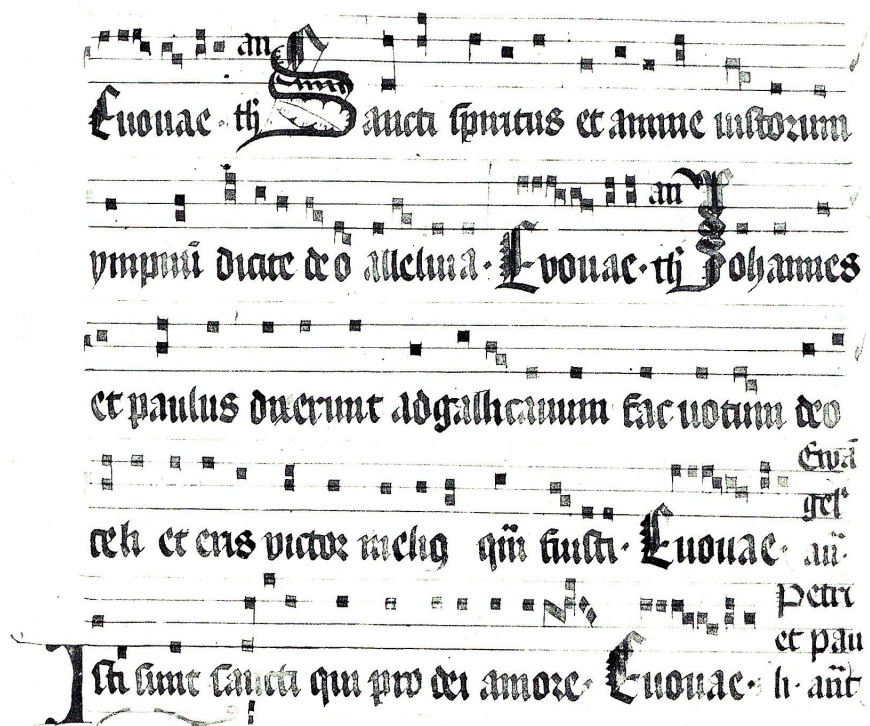 an
Euouae · th Sancti spiritus et anime iustorum
an
ympnū dicite deo alleluia · Evouae · th Johannes
et paulus dixerunt ad gallicanum fac uotum deo
Ewā
gelꝰ
celi et eris victor meliꝰ qm̄ fuisti · Euouae · añ ·
Petri
et pau
Isti sunt sancti qui pro dei amore · Euouae · li · añt